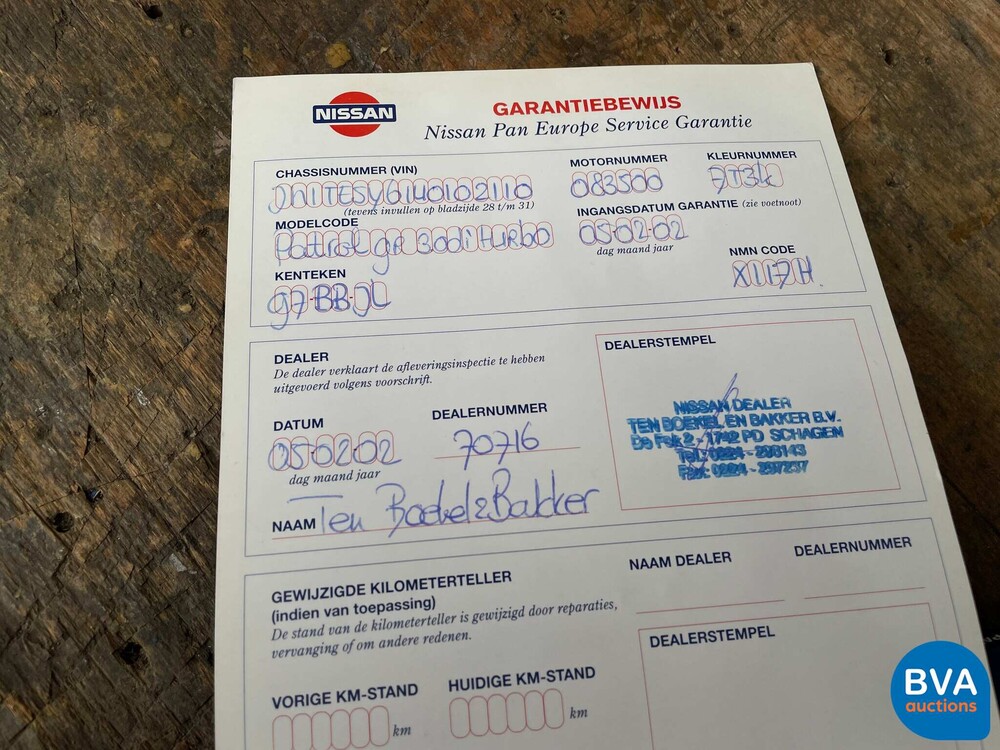 NISSAN
GARANTIEBEWIJS
Nissan Pan Europe Service Garantie
CHASSISNUMMER (VIN)
JN1TESY61U0102110
(tevens invullen op bladzijde 28 t/m 31)
MOTORNUMMER
083500
KLEURNUMMER
MODELCODE
Patrol gr 30di turbo
INGANGSDATUM GARANTIE (zie voetnoot)
05-02-02
dag maand jaar
KENTEKEN
97-BB-JL
NMN CODE
X117H
DEALER
De dealer verklaart de afleveringsinspectie te hebben
uitgevoerd volgens voorschrift.
DATUM
05-02-02
dag maand jaar
DEALERNUMMER
70716
NAAM Ten Boekel & Bakker
DEALERSTEMPEL
NISSAN DEALER
TEN BOEKEL EN BAKKER B.V.
De Fok 2 - 1742 PD SCHAGEN
Tel. 0224 -
Fax: 0224 -
GEWIJZIGDE KILOMETERTELLER
(indien van toepassing)
De stand van de kilometerteller is gewijzigd door reparaties,
vervanging of om andere redenen.
NAAM DEALER
DEALERNUMMER
DEALERSTEMPEL
VORIGE KM-STAND
km
HUIDIGE KM-STAND
km
BVA
auctions